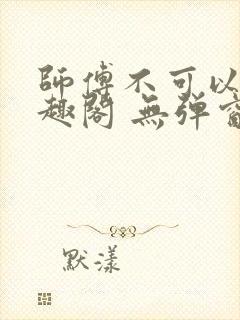 師傅不可以
趣閣 無彈窗
默漾